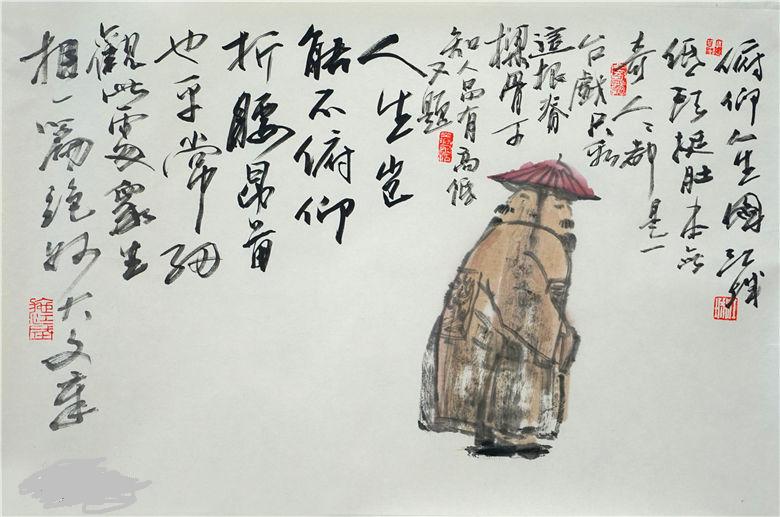 俯仰人生圖江
低頭挺肚本無
奇人々都是一
台戲只
這根脊
樑骨
知人品有高低
又題
人生豈
能不俯仰
折腰昂首
也平常細
觀此處眾生
相一篇絕妙大文章